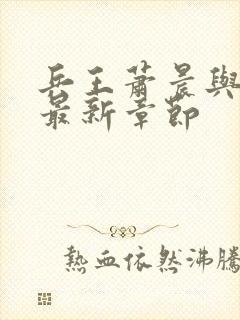 兵王蕭晨與
最新章節
熱血依然沸騰